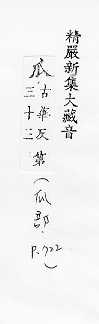 精嚴新集大藏音
瓜 古華反 第
三十三
(瓜部. P.722)